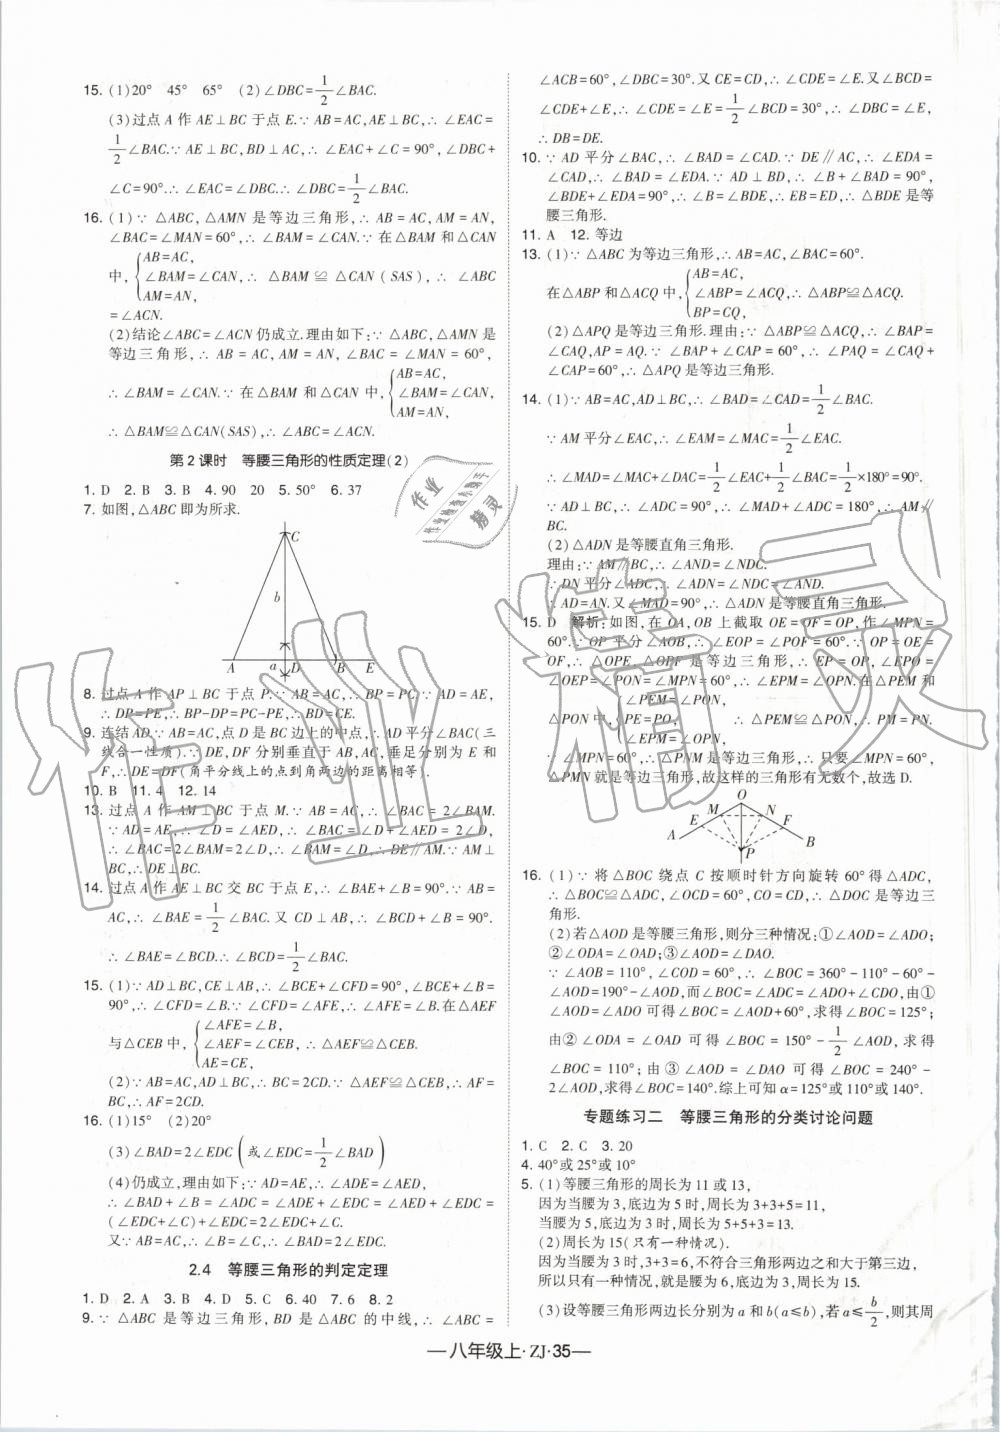 15. (1)20° 45° 65° (2)∠DBC=1/2∠BAC.
(3)过点 A 作 AE⊥BC 于点 E.∵ AB=AC,AE⊥BC,∴ ∠EAC=
1/2∠BAC.∵ AE⊥BC,BD⊥AC,∴ ∠EAC+∠C=90°,∠DBC+
∠C=90°.∴ ∠EAC=∠DBC.∴ ∠DBC=1/2∠BAC.
16. (1)∵ △ABC,△AMN 是等边三角形,∴ AB=AC,AM=AN,
∠BAC=∠MAN=60°,∴ ∠BAM=∠CAN.∵ 在△BAM 和△CAN
中,{AB=AC, ∠BAM=∠CAN, AM=AN, ∴ △BAM≌△CAN(SAS),∴ ∠ABC
=∠ACN.
(2)结论∠ABC=∠ACN 仍成立.理由如下:∵ △ABC,△AMN 是
等边三角形,∴ AB=AC,AM=AN,∠BAC=∠MAN=60°,
∴ ∠BAM=∠CAN.∵ 在△BAM 和△CAN 中,{AB=AC, ∠BAM=∠CAN, AM=AN,
∴ △BAM≌△CAN(SAS),∴ ∠ABC=∠ACN.
第2课时 等腰三角形的性质定理(2)
1. D 2. B 3. B 4. 90 20 5. 50° 6. 37
7. 如图,△ABC 即为所求.
C
b
A a D B E
8. 过点 A 作 AP⊥BC 于点 P.∵ AB=AC,∴ BP=PC.∵ AD=AE,
∴ DP=PE,∴ BP-DP=PC-PE,∴ BD=CE.
9. 连结 AD.∵ AB=AC,点 D 是 BC 边上的中点,∴ AD 平分∠BAC(三
线合一性质).∵ DE,DF 分别垂直于 AB,AC 于点 E 和
F,∴ DE=DF(角平分线上的点到角两边的距离相等).
10. B 11. 4 12. 14
13. 过点 A 作 AM⊥BC 于点 M.∵ AB=AC,∴ ∠BAC=2∠BAM.
∵ AD=AE,∴ ∠D=∠AED,∴ ∠BAC=∠D+∠AED=2∠D,
∴ ∠BAC=2∠BAM=2∠D,∴ ∠BAM=∠D,∴ DE∥AM.∵ AM⊥
BC,∴ DE⊥BC.
14. 过点 A 作 AE⊥BC 交 BC 于点 E,∴ ∠BAE+∠B=90°.∵ AB=
AC,∴ ∠BAE=1/2∠BAC.又 CD⊥AB,∴ ∠BCD+∠B=90°.
∴ ∠BAE=∠BCD.∴ ∠BCD=1/2∠BAC.
15. (1)∵ AD⊥BC,CE⊥AB,∴ ∠BCE+∠CFD=90°,∠BCE+∠B=
90°,∴ ∠CFD=∠B.∵ ∠CFD=∠AFE,∴ ∠AFE=∠B.在△AEF
与△CEB 中,{∠AFE=∠B, ∠AEF=∠CEB, AE=CE, ∴ △AEF≌△CEB.
(2)∵ AB=AC,AD⊥BC,∴ BC=2CD.∵ △AEF≌△CEB,∴ AF=
BC,∴ AF=2CD.
16. (1)15° (2)20°
(3)∠BAD=2∠EDC(或∠EDC=1/2∠BAD)
(4)仍成立,理由如下:∵ AD=AE,∴ ∠ADE=∠AED,
∴ ∠BAD+∠B=∠ADC=∠ADE+∠EDC=∠AED+∠EDC=
(∠EDC+∠C)+∠EDC=2∠EDC+∠C.
又∵ AB=AC,∴ ∠B=∠C,∴ ∠BAD=2∠EDC.
2.4 等腰三角形的判定定理
1. D 2. A 3. B 4. D 5. C 6. 40 7. 6 8. 2
9. ∵ △ABC 是等边三角形,BD 是△ABC 的中线,∴ ∠ABC=
∠ACB=60°,∠DBC=30°.又 CE=CD,∴ ∠CDE=∠E.又∠BCD=
∠CDE+∠E,∴ ∠CDE=∠E=1/2∠BCD=30°,∴ ∠DBC=∠E,
∴ DB=DE.
10. ∵ AD 平分∠BAC,∴ ∠BAD=∠CAD.∵ DE∥AC,∴ ∠EDA=
∠CAD,∴ ∠EDA=∠BAD.∵ AD⊥BD,∴ ∠B+∠BAD=90°,
∠BDE+∠EDA=90°,∴ ∠B=∠BDE,∴ EB=ED,∴ △BDE 是等
腰三角形.
11. A 12. 等边
13. (1)∵ △ABC 为等边三角形,∴ AB=AC,∠BAC=60°.
在△ABP 和△ACQ 中,{AB=AC, ∠ABP=∠ACQ, BP=CQ, ∴ △ABP≌△ACQ.
(2)△APQ 是等边三角形.理由:∵ △ABP≌△ACQ,∴ ∠BAP=
∠CAQ,AP=AQ.∵ ∠BAP+∠CAP=60°,∴ ∠PAQ=∠CAQ+
∠CAP=60°,∴ △APQ 是等边三角形.
14. (1)∵ AB=AC,AD⊥BC,∴ ∠BAD=∠CAD=1/2∠BAC.
∵ AM 平分∠EAC,∴ ∠EAM=∠MAC=1/2∠EAC.
∴ ∠MAD=∠MAC+∠DAC=1/2∠EAC+1/2∠BAC=1/2×180°=90°.
∵ AD⊥BC,∴ ∠ADC=90°,∴ ∠MAD+∠ADC=180°,∴ AM∥
BC.
(2)△ADN 是等腰直角三角形.
理由:∵ AM∥BC,∴ ∠AND=∠NDC.
∵ DN 平分∠ADC,∴ ∠ADN=∠NDC=∠AND.
∴ AD=AN.又∠MAD=90°,∴ △ADN 是等腰直角三角形.
15. D 解析:如图,在 OA,OB 上截取 OE=OF=OP,作∠MPN=
60°.∵ OP 平分∠AOB,∴ ∠EOP=∠POF=60°.∵ OP=OE=
OF,∴ △OPE,△OPF 是等边三角形,∴ EP=OP,∠EPO=
∠OEP=∠PON=∠MPN=60°,∴ ∠EPM=∠OPN.在△PEM 和
△PON 中,{∠PEM=∠PON, PE=PO, ∠EPM=∠OPN, ∴ △PEM≌△PON,∴ PM=PN.
∵ ∠MPN=60°,∴ △PNM 是等边三角形,∴ 只要∠MPN=60°,
△PMN 就是等边三角形,故这样的三角形有无数个,故选 D.
O
M N
E F
A P B
16. (1)∵ 将△BOC 绕点 C 按顺时针方向旋转 60°得△ADC,
∴ △BOC≌△ADC,∠OCD=60°,CO=CD,∴ △DOC 是等边三
角形.
(2)若△AOD 是等腰三角形,则分三种情况:①∠AOD=∠ADO;
②∠ODA=∠OAD;③∠AOD=∠DAO.
∵ ∠AOB=110°,∠COD=60°,∴ ∠BOC=360°-110°-60°-
∠AOD=190°-∠AOD,而∠BOC=∠ADC=∠ADO+∠CDO,由①
∠AOD=∠ADO 可得∠BOC=∠AOD+60°,求得∠BOC=125°;
由② ∠ODA=∠OAD 可得∠BOC=150°-1/2∠AOD,求得
∠BOC=110°;由③ ∠AOD=∠DAO 可得∠BOC=240°-
2∠AOD,求得∠BOC=140°.综上可知 α=125°或110°或140°.
专题练习二 等腰三角形的分类讨论问题
1. C 2. C 3. 20
4. 40°或25°或10°
5. (1)等腰三角形的周长为 11 或 13,
因为当腰为 3,底边为 5 时,周长为 3+3+5=11,
当腰为 5,底边为 3 时,周长为 5+5+3=13.
(2)周长为 15(只有一种情况).
因为当腰为 3,底边为 6 时,3+3=6,不符合三角形两边之和大于第三边,
所以只有一种情况,腰为 6,底边为 3,周长为 15.
(3)设等腰三角形两边长分别为 a 和 b(a≤b),若 a≤b/2,则其周
—八年级上·ZJ·35—
作业精灵